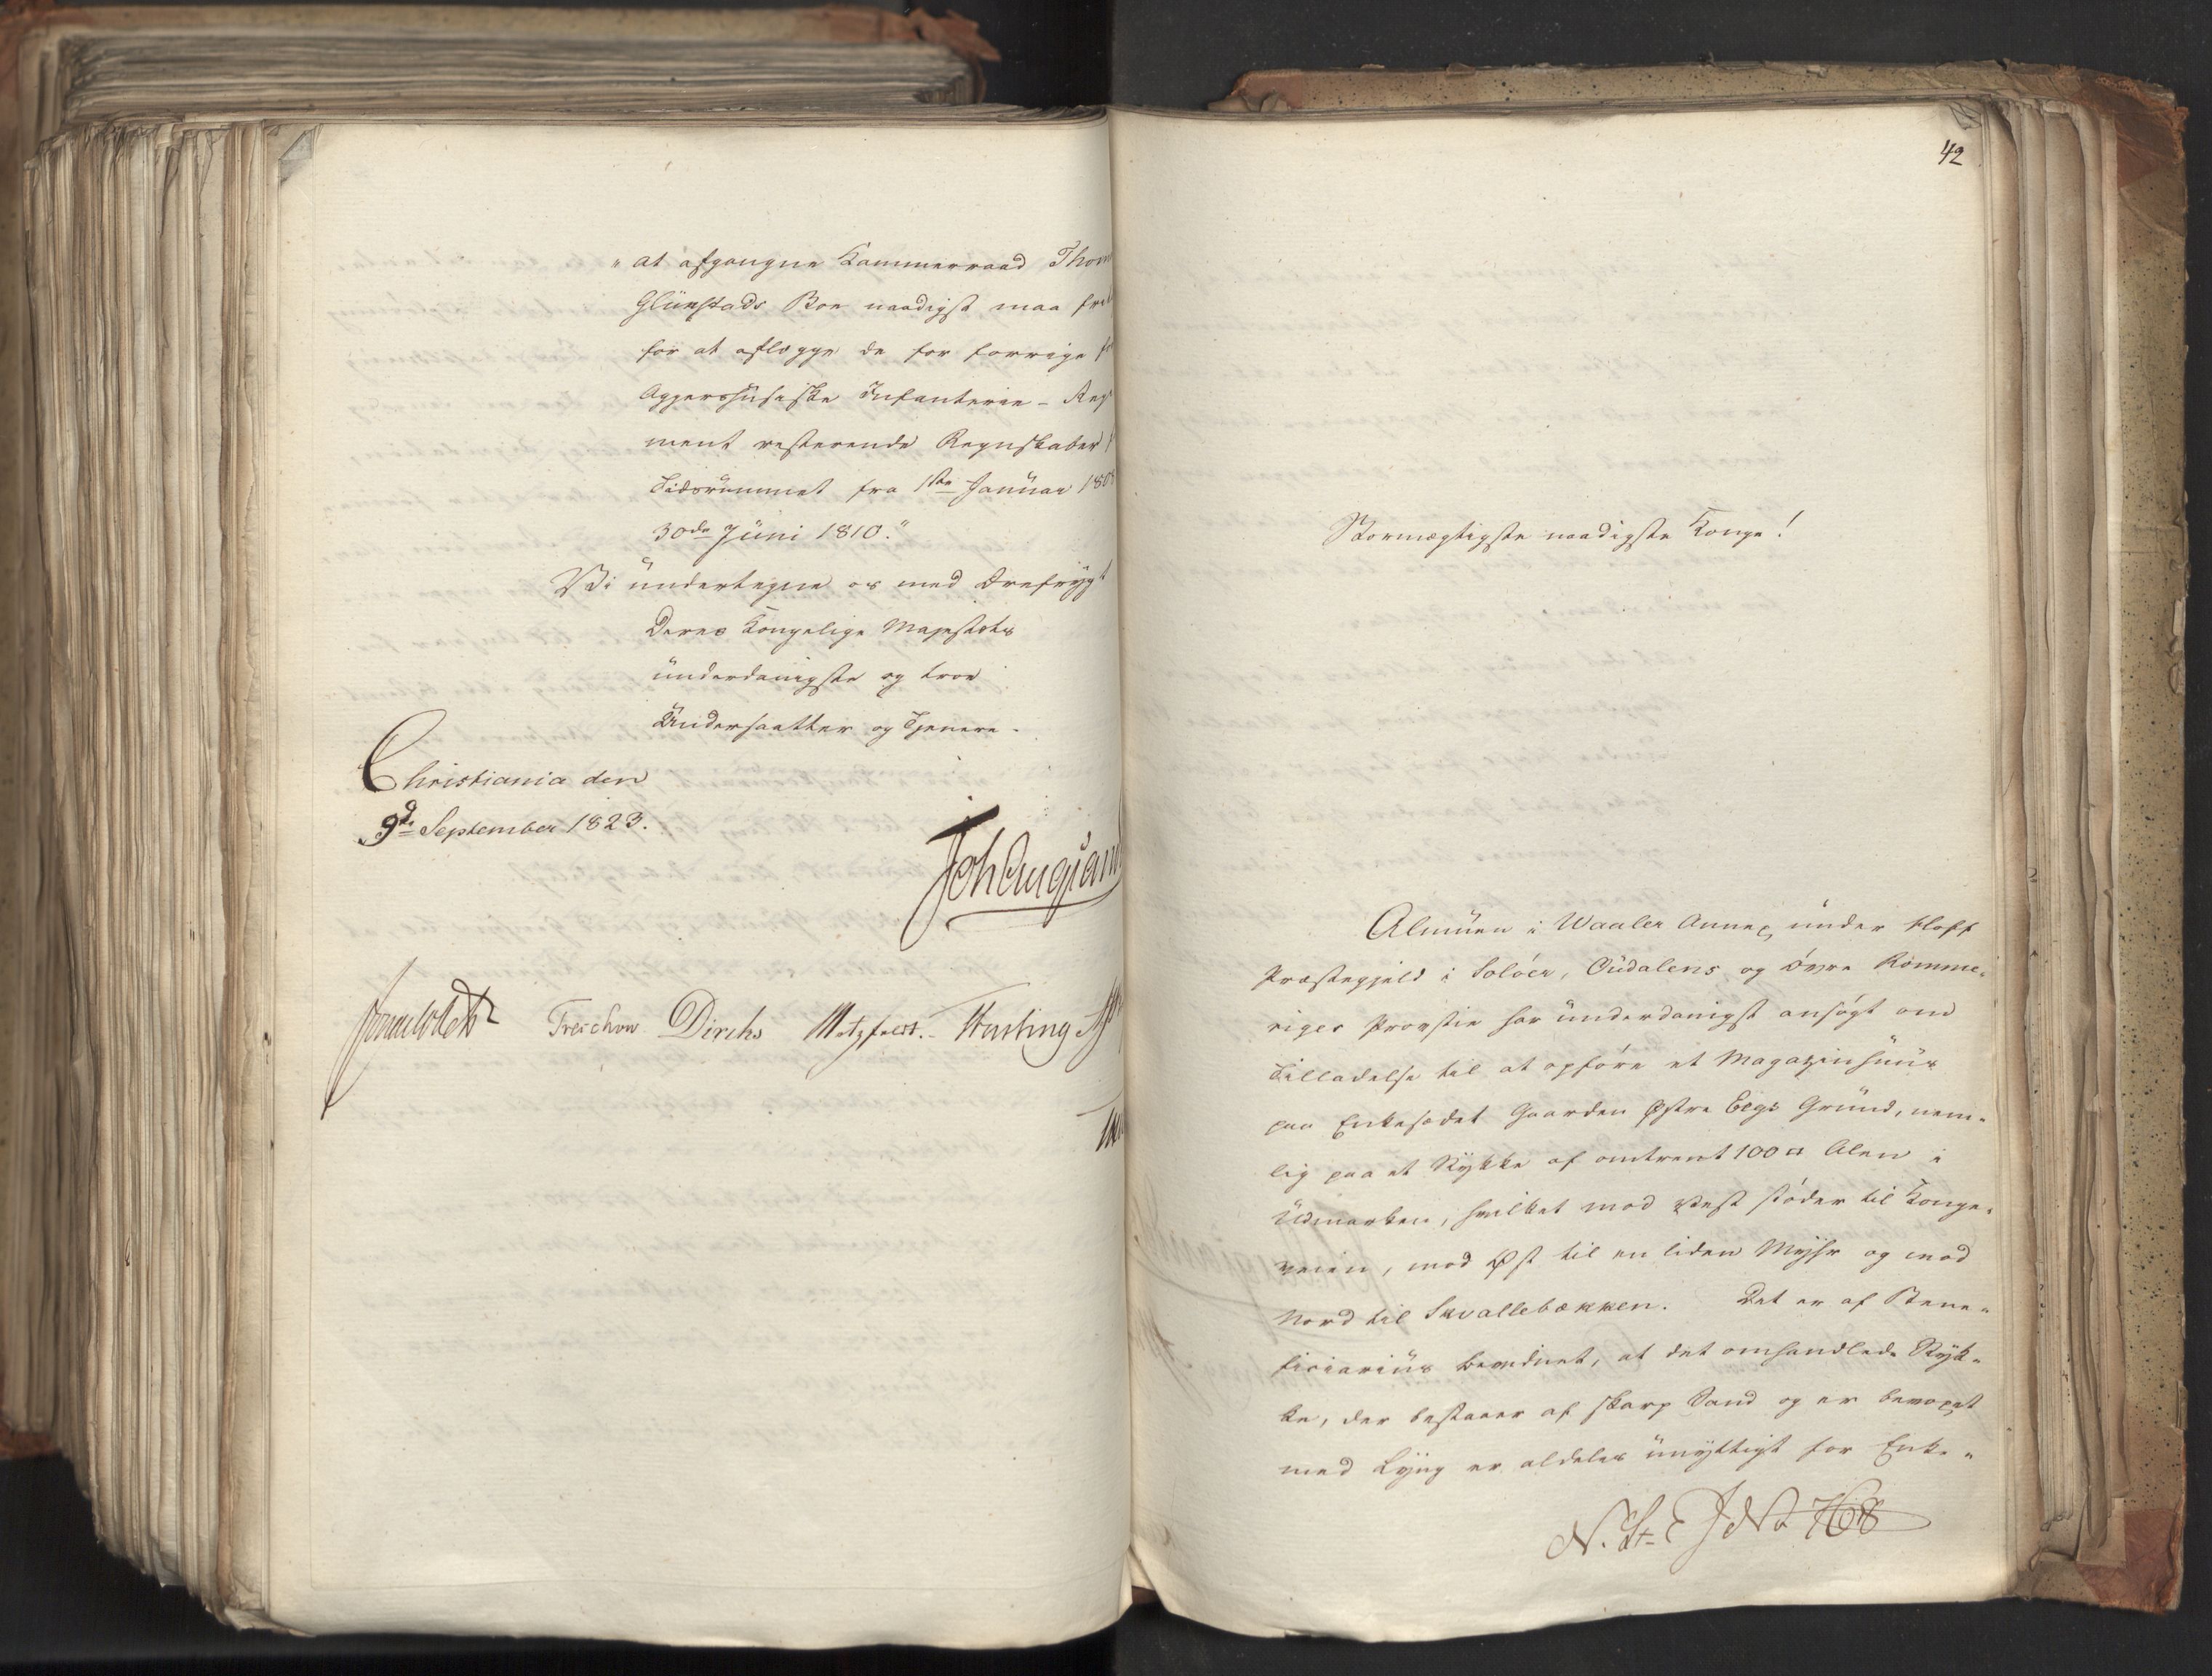 „at afgangne Kammerraad Thom
Glückstads Boe naadigst maa
for at aflægge de for forrige
Aggershusiske Infanterie-Regi
ment resterende Regnskaber
Tidsrummet fra 1ste Januar 180
30de Juni 1810.“
Vi undertegne os med Ærefrygt
Deres Kongelige Majestæts
underdanigste og troe
Undersaatter og Tjenere.
Christiania den
9de September 1823.
Joh Aug Sand
Sommerhielm Treschow Diriks Motzfeldt. Fasting
42
Stormægtigste naadigste Konge!
Almuen i Waaler Annex under Hoff
Præstegjeld i Solöer, Oudalens og övre Romme-
riges Provstie har underdanigst ansögt om
Tilladelse til at opföre et Magazinhuus
paa Enkesædet Gaarden Østre Eegs Grund, nem-
lig paa et Stykke af omtrent 100 □ Alen i
Udmarken, hvilket mod Vest stöder til Konge-
veien, mod Øst til en liden Myhr og mod
Nord til Skvallebækken. Det er af Bene-
ficiarius bevidnet, at det omhandlede Styk-
ke, der bestaaer af skarp Sand og er bevoxet
med Lyng er aldeles unyttigt for Enke-